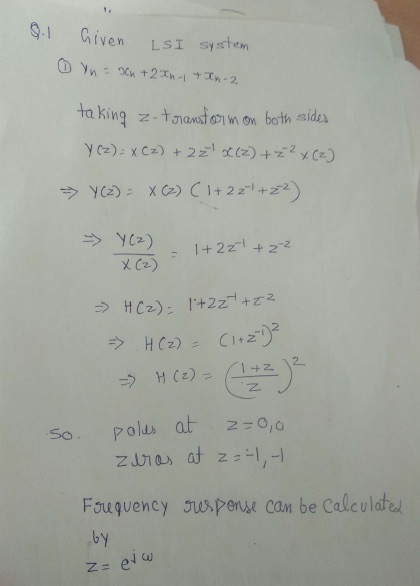 Q.1 Given LSI system
① yn = xn + 2xn-1 + xn-2
taking z-transform on both sides
Y(z) = X(z) + 2z⁻¹ X(z) + z⁻² X(z)
⇒ Y(z) = X(z) (1+2z⁻¹+z⁻²)
⇒ Y(z)/X(z) = 1+2z⁻¹+z⁻²
⇒ H(z) = 1+2z⁻¹+z⁻²
⇒ H(z) = (1+z⁻¹)²
⇒ H(z) = ((1+z)/z)²
So. poles at z=0,0
zeros at z=-1,-1
Frequency response can be calculated
by
z = e^jω